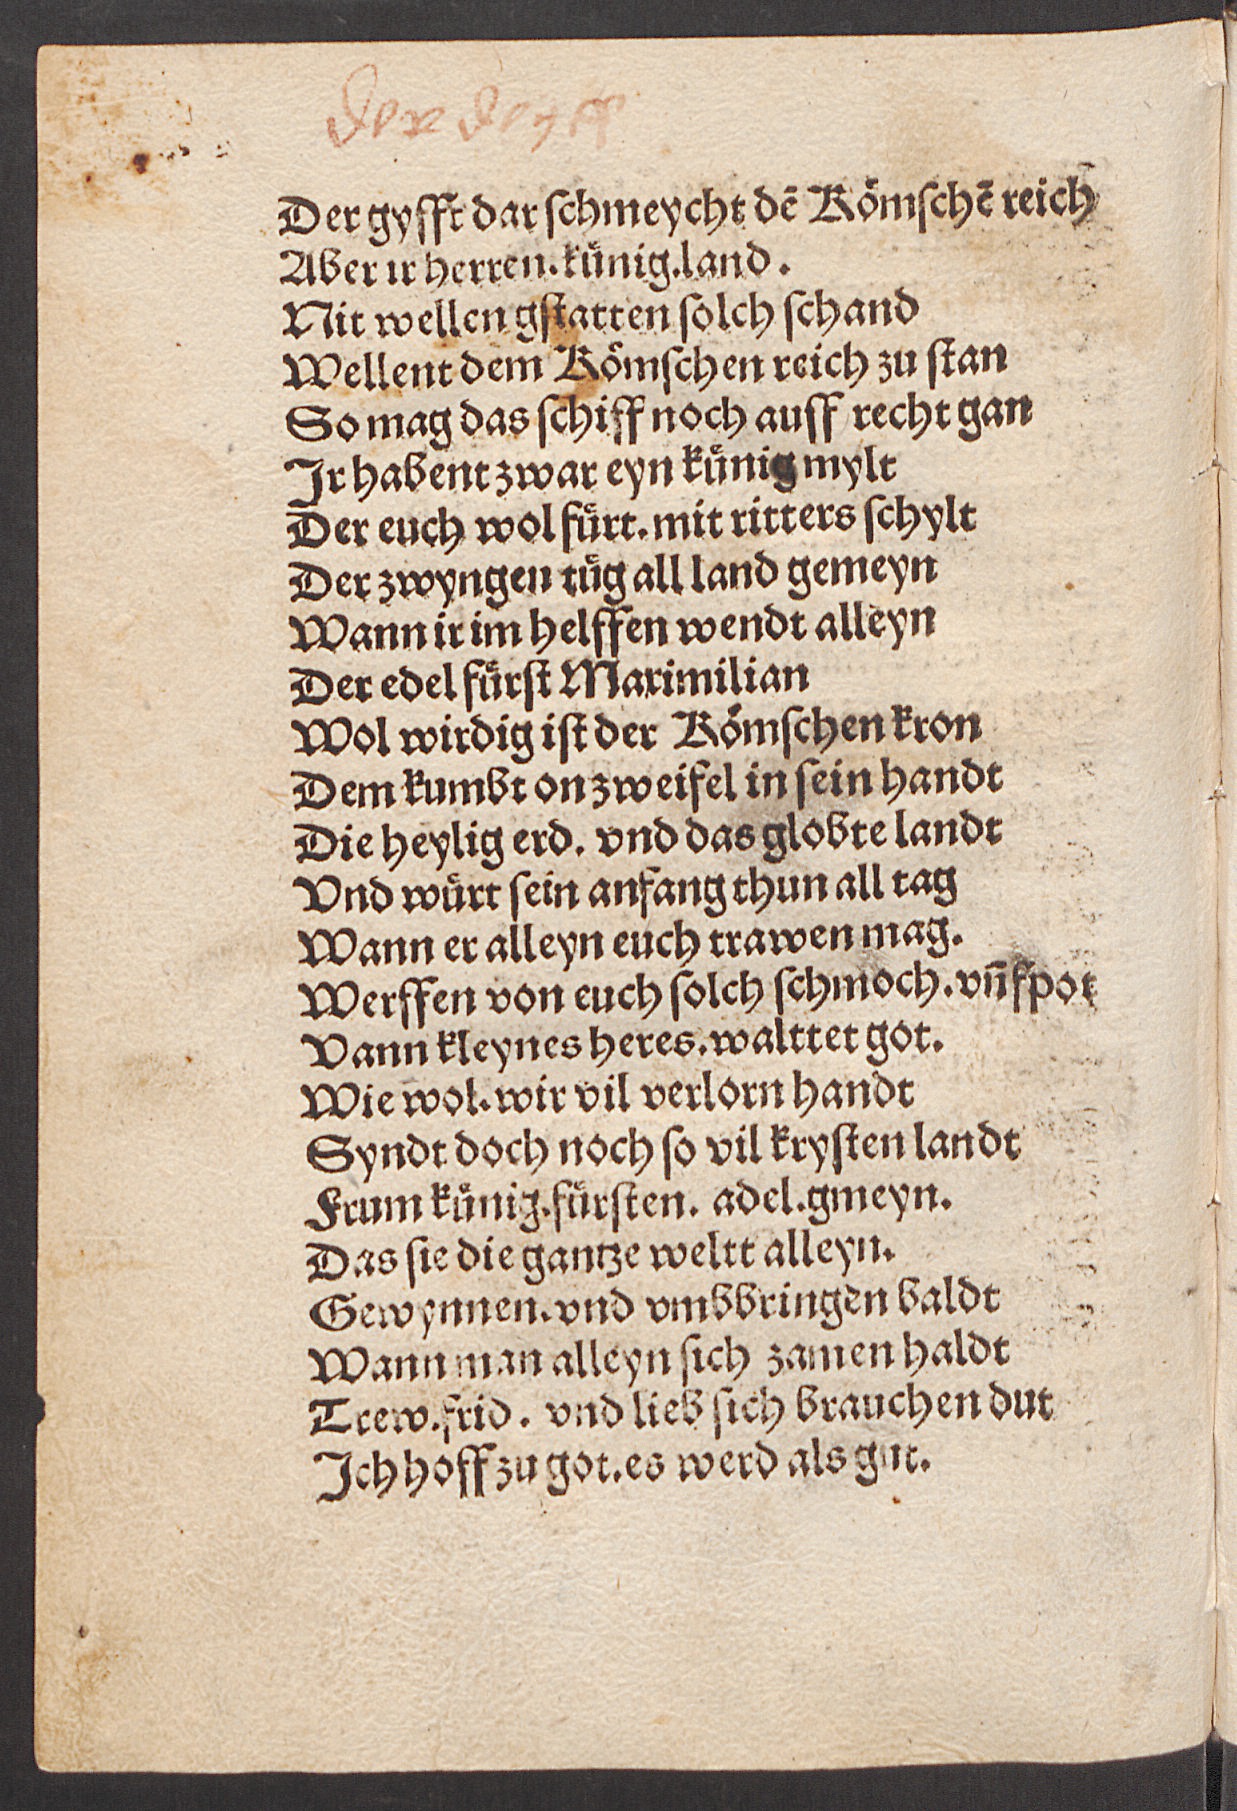 Der gyfft dar schmeycht dē Römschē reich
Aber ir herren. künig. land.
Nit wellen gstatten solch schand
Wellent dem Römschen reich zu stan
So mag das schiff noch auff recht gan
Ir habent zwar eyn künig mylt
Der euch wol fürt. mit ritters schylt
Der zwyngen tüg all land gemeyn
Wann ir im helffen wendt alleyn
Der edel fürst Maximilian
Wol wirdig ist der Römschen kron
Dem kumbt on zweifel in sein handt
Die heylig erd. vnd das globte landt
Vnd würt sein anfang thun all tag
Wann er alleyn euch trawen mag.
Werffen von euch solch schmoch. vn̄ spot
Vann kleynes heres. walttet got.
Wie wol. wir vil verlorn handt
Syndt doch noch so vil krysten landt
Frum künig. fürsten. adel. gmeyn.
Das sie die gantze weltt alleyn.
Gewynnen. vnd vmbbringen baldt
Wann man alleyn sich zamen haldt
Trew. frid. vnd lieb sich brauchen dut
Ich hoff zu got. es werd als gut.